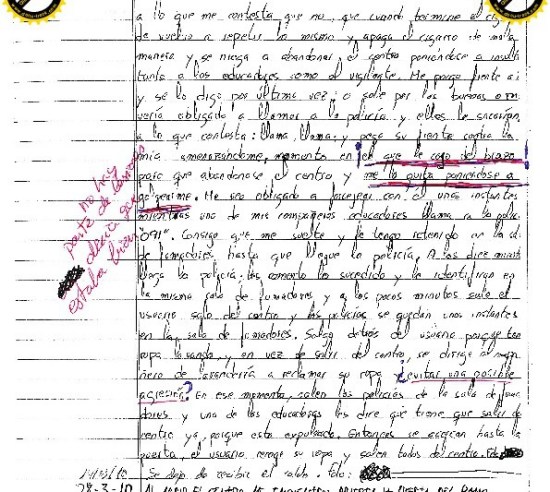 a lo que me contesta que no, que cuando termine el
le vuelvo a repetir lo mismo y apaga el cigarro de mala
manera y se niega a abandonar el centro poniéndose a insul
tarnos a los educadores como al vigilante. Me pongo frente a
y se lo digo por última vez; o sale por las buenas o me
vería obligado a llamar a la policía y ellos le sacarían
a lo que contesta: llama, llama. y pega su frente contra la
mía amenazándome, momento en ¡el que le cojo del brazo
para que abandonase el centro y me lo quita poniéndose a
golpearme. Me veo obligado a forcejear con él unos instantes
mientras uno de mis compañeros educadores llama a la polic.
"091". Consigo que me suelte y le tengo retenido en la sala
de fumadores hasta que llegue la policía. A los diez minut
llega la policía, les comento lo sucedido y le identifican en
la misma sala de fumadores y a los pocos minutos sale el
usuario sale del centro y los policías se quedan unos instantes
en la sala de fumadores. Salgo detrás del usuario porque tenía
ropa lavando, y en vez de salir del centro, se dirige al compa
ñero de lavandería a reclamar su ropa y ¿evitar una posible
agresión? En ese momento, salen los policías de la sala de fuma
dores y una de las educadoras les dice que tiene que salir del
centro ya, porque está expulsado. Entonces se acercan hasta la
puerta, el usuario, recoge su ropa y salen todos del centro. Fdo
no hay
parte de lesiones
decía que
estaba bien
Se dejó de recibir el caldo. Fdo:
28-3-10 AL ABRIR EL CENTRO